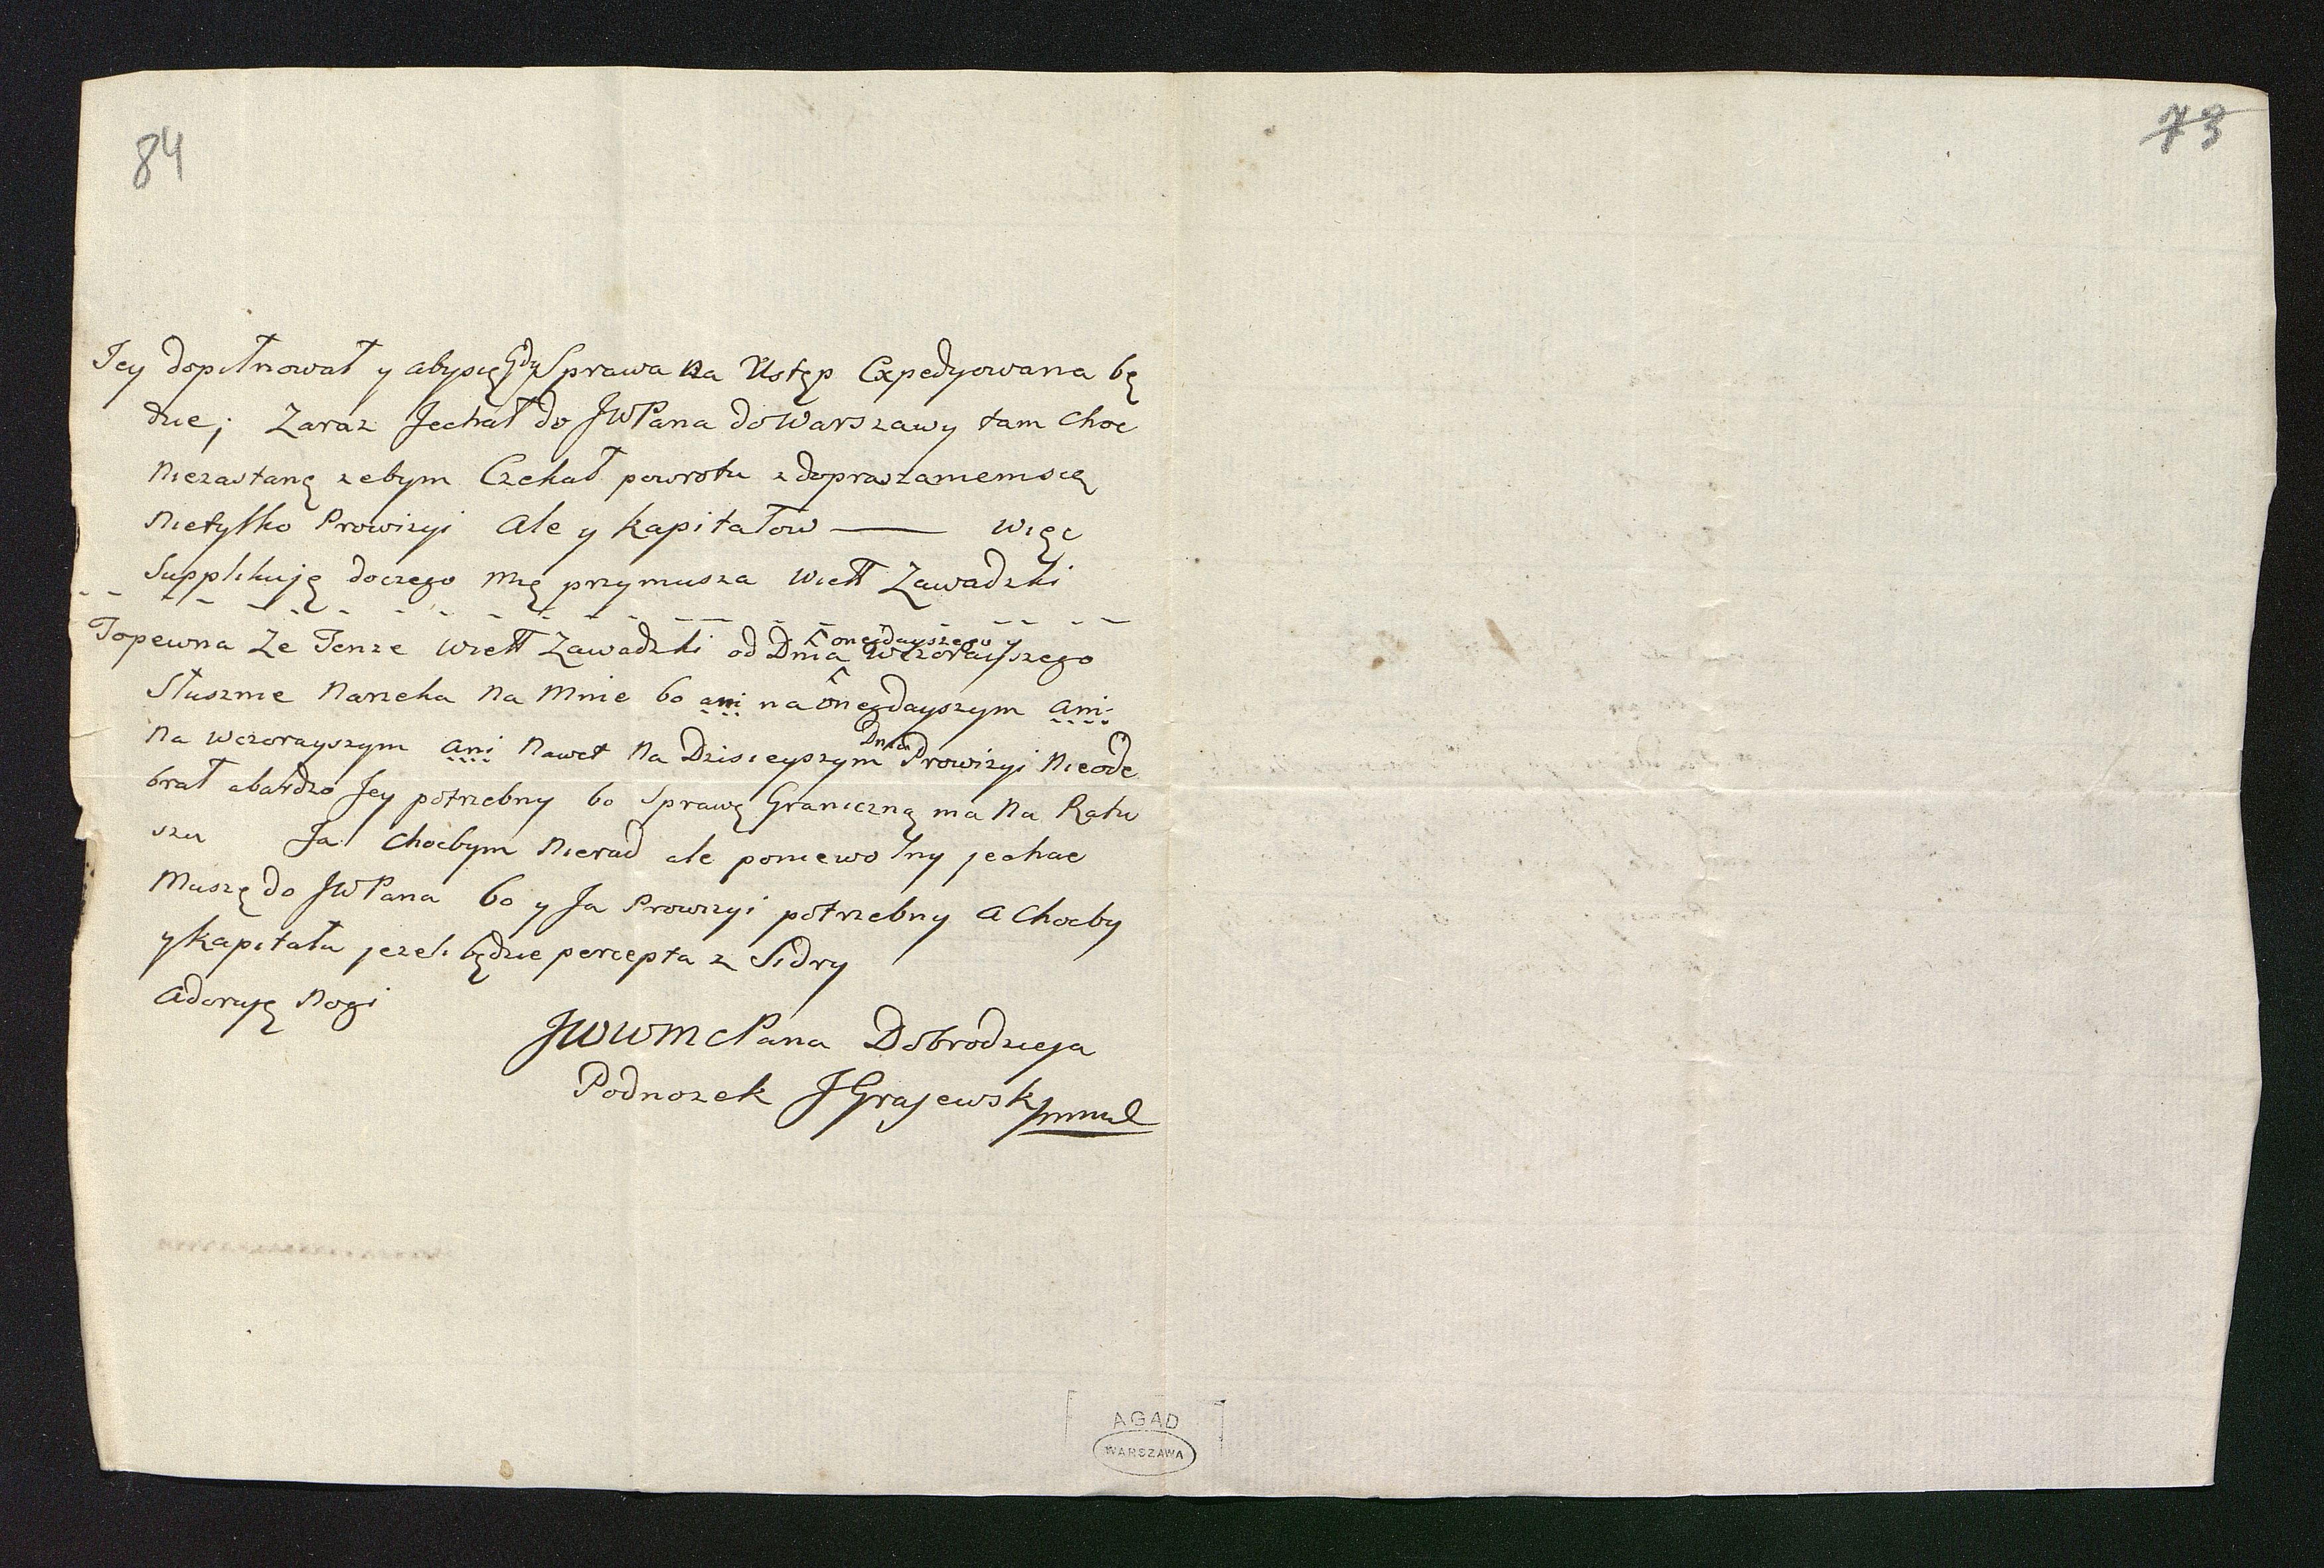 84
73
Jey dopilnował y abysię Gdy Sprawa na Ustęp Expedyowana bę
dzie; Zaraz Jechał do JWPana do Warszawy tam choc
Niezastanę zebym Czekał powrotu z dopraszaniemsię
Nietylko Prowizyi Ale y kapitałow —— więc
Supplikuję doczego mię przymusza Wiell Zawadzki
To pewna Ze Tenze Wiell Zawadzki od Dnia onegdayszego y wczorayszego
Słusznie Narzeka Na Mnie bo ani na onegdayszym ani
Na wczorayszym ani Nawet Na Dzisieyszym Dniu Prowizyi Nieode
brał abardzo Jey potrzebny bo Sprawę Graniczną ma Na Ratu
szu Ja Chocbym Nierad ale poniewolny jechac
Muszę do JWPana bo y Ja Prowizyi potrzebny A Chocby
y Kapitału jezeli będzie percepta z Sidry
Adoruję Nogi
JWWMcPana Dobrodzieja
Podnozek JGrajewski
AGAD
WARSZAWA